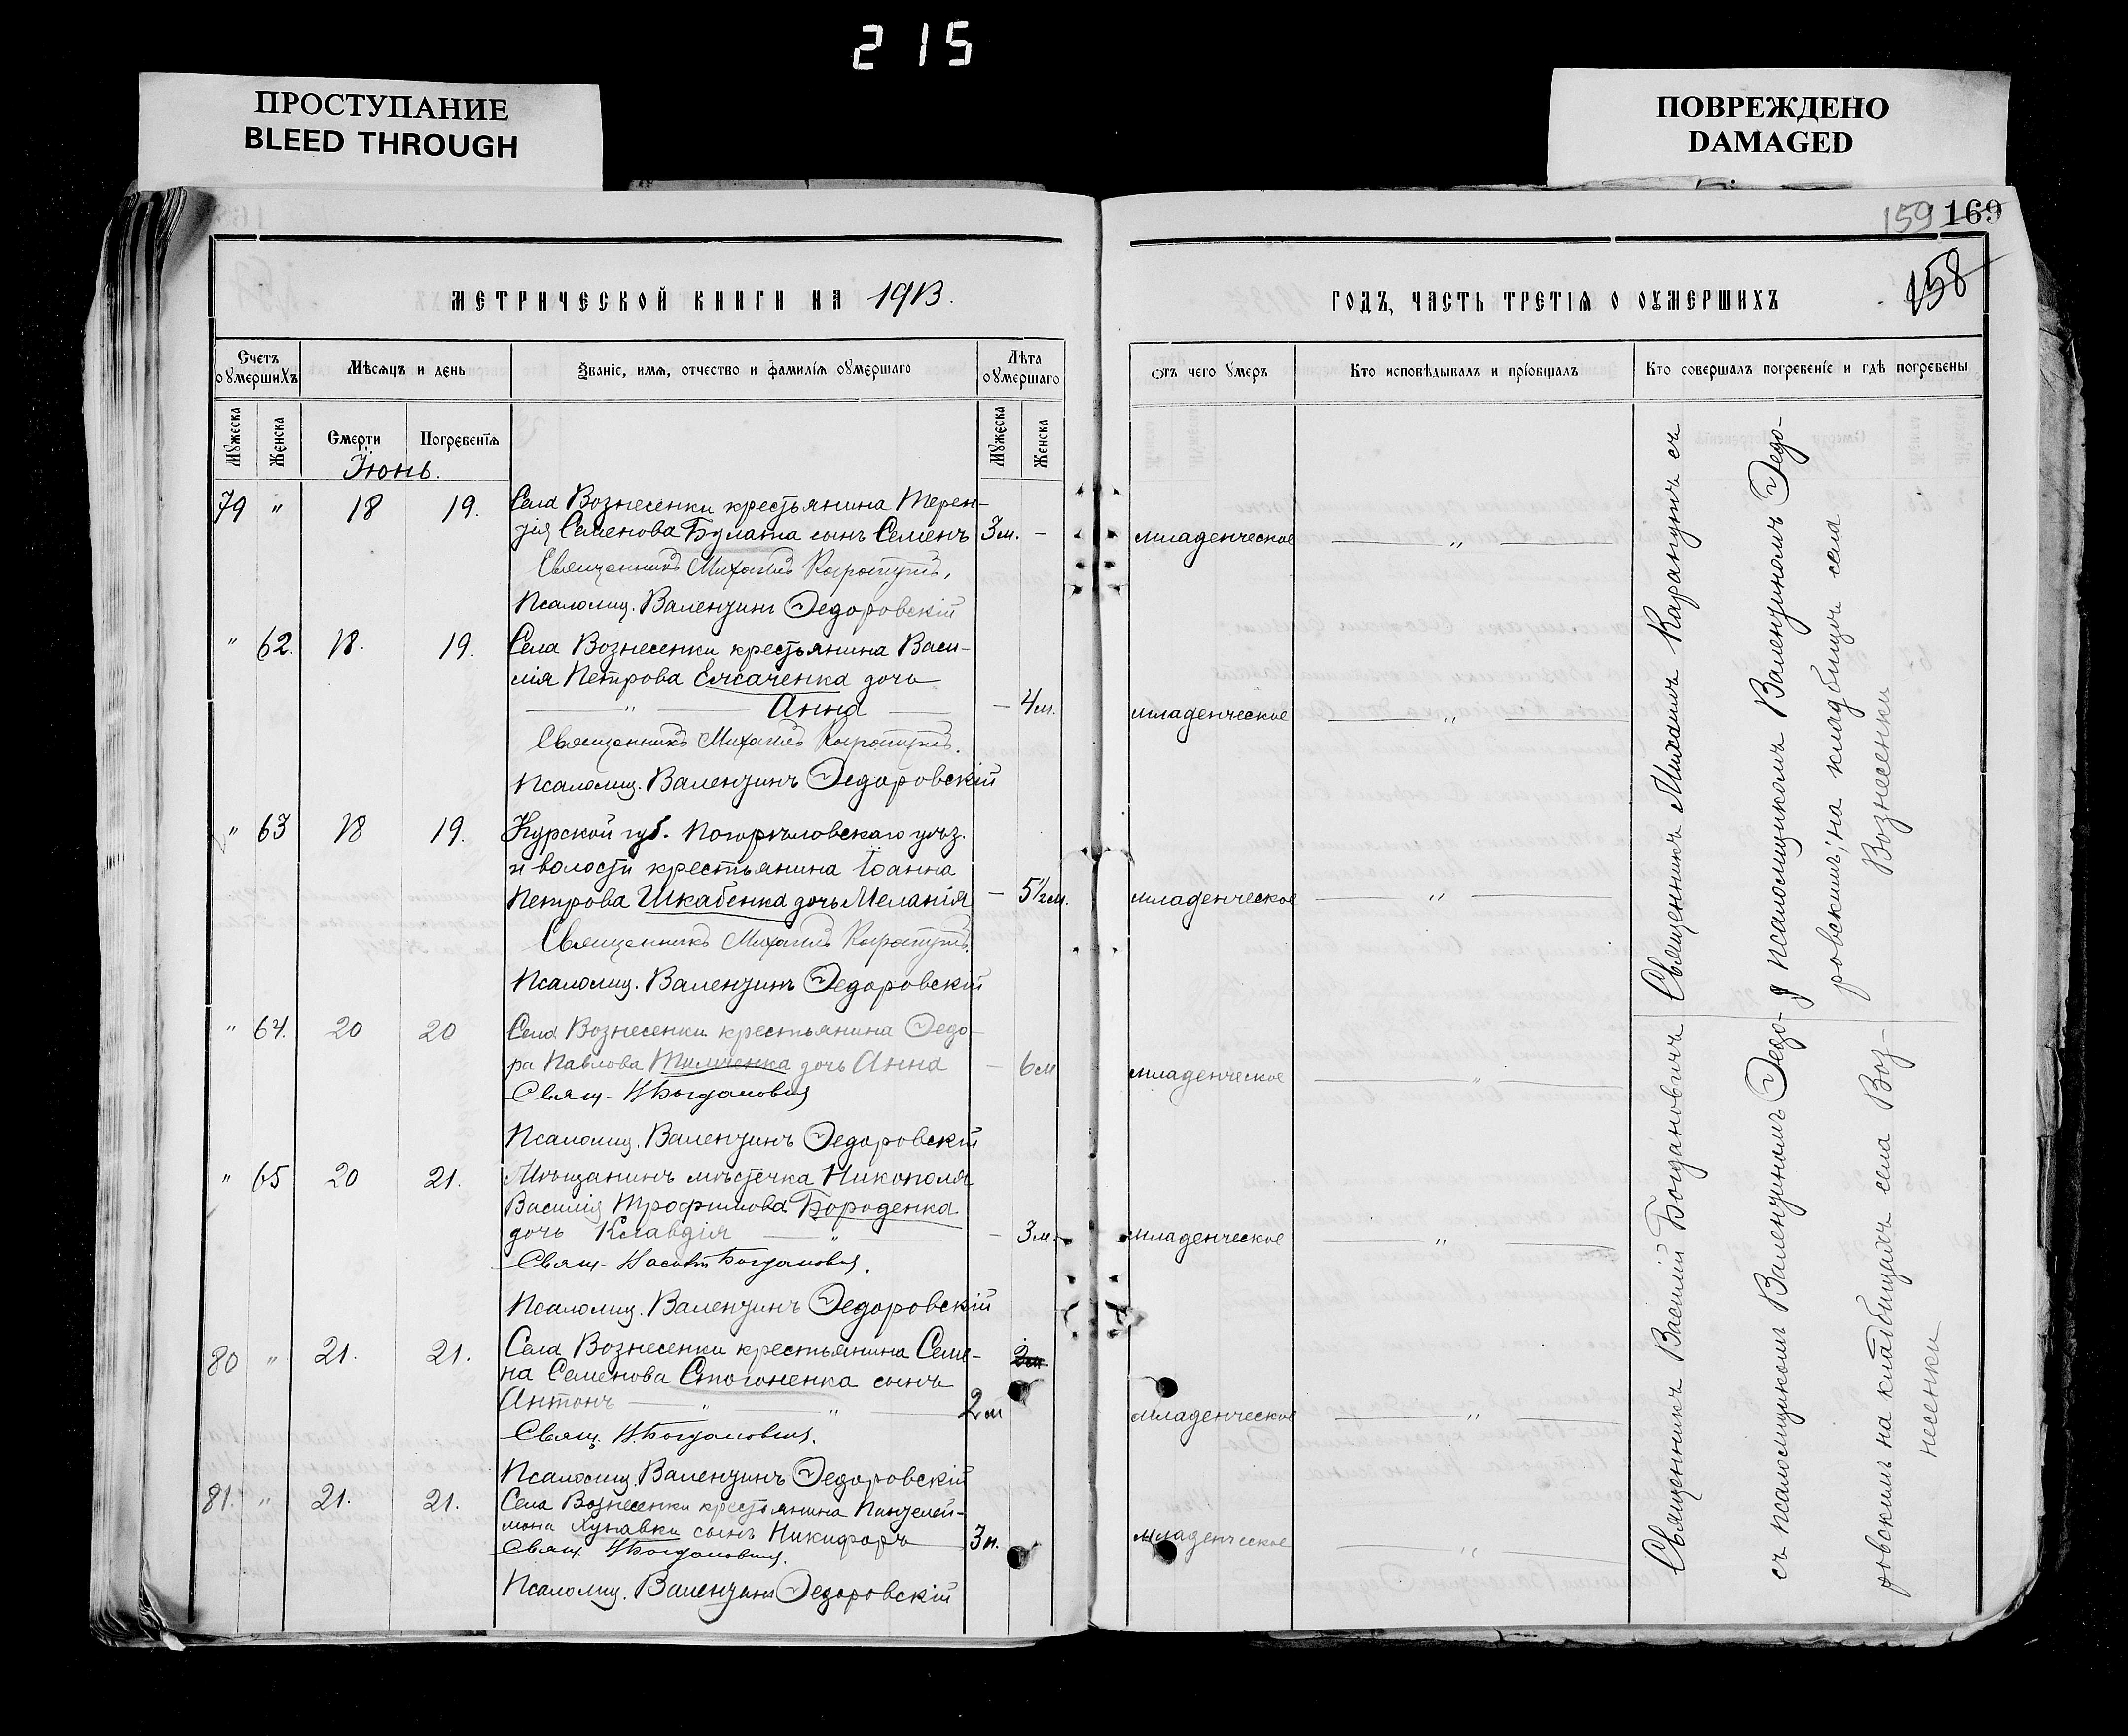 215
ПРОСТУПАНИЕ
BLEED THROUGH
ПОВРЕЖДЕНО
DAMAGED
159 169
158
МЕТРИЧЕСКОЙ КНИГИ НА 1913.
Счетъ оумершихъ
Мѣсяцъ и день
Званіе, имя, отчество и фамилія оумершаго
Лѣта оумершаго
Мужеска
Женска
Смерти
Погребенія
Мужеска
Женска
Іюнь.
79 " 18 19. Села Вознесенки крестьянина Терен-
тія Семенова Булата сынъ Семенъ 3 м. -
Священникъ Михаилъ
Псаломщ. Валентинъ Ѳедоровскій
" 62. 18. 19. Села Вознесенки крестьянина Васи-
лія Петрова дочь
" Анна - 4 м.
Священникъ Михаилъ
Псаломщ. Валентинъ Ѳедоровскій
" 63 18 19. Курской губ. уѣз.
и волости крестьянина Іоанна
Петрова Шкабенка дочь Меланія - 5½ м.
Священникъ Михаилъ
Псаломщ. Валентинъ Ѳедоровскій
" 64. 20 20 Села Вознесенки крестьянина Ѳедо-
ра Павлова дочь Анна - 6 м
Свящ. В Богдановичъ
Псаломщ. Валентинъ Ѳедоровскій
" 65 20 21. Мѣщанинъ мѣстечка Никополя
Василія Трофимова Бороденка
дочь Клавдія " - 3 м.
Свящ. Василій Богдановичъ.
Псаломщ. Валентинъ Ѳедоровскій
80 " 21. 21. Села Вознесенки крестьянина Семе-
на Семенова Стогоненка сынъ
Антонъ " " 2 м
Свящ. В. Богдановичъ.
Псаломщ. Валентинъ Ѳедоровскій
81. " 21. 21. Села Вознесенки крестьянина Пантелей-
мона сынъ Никифоръ 3 м.
Свящ. В Богдановичъ.
Псаломщ. Валентинъ Ѳедоровскій
ГОДЪ, ЧАСТЬ ТРЕТІЯ О ОУМЕРШИХЪ
Отъ чего умеръ
Кто исповѣдывалъ и пріобщалъ
Кто совершалъ погребеніе и гдѣ погребены
младенческое "
младенческое "
младенческое "
младенческое "
младенческое "
младенческое "
младенческое "
Священникъ Михаилъ съ
псаломщикомъ Валентиномъ Ѳедо-
ровскимъ; на кладбищѣ села
Вознесенки
Священникъ Василій Богдановичъ
съ псаломщикомъ Валентиномъ Ѳедо-
ровскимъ на кладбищѣ села Воз-
несенки